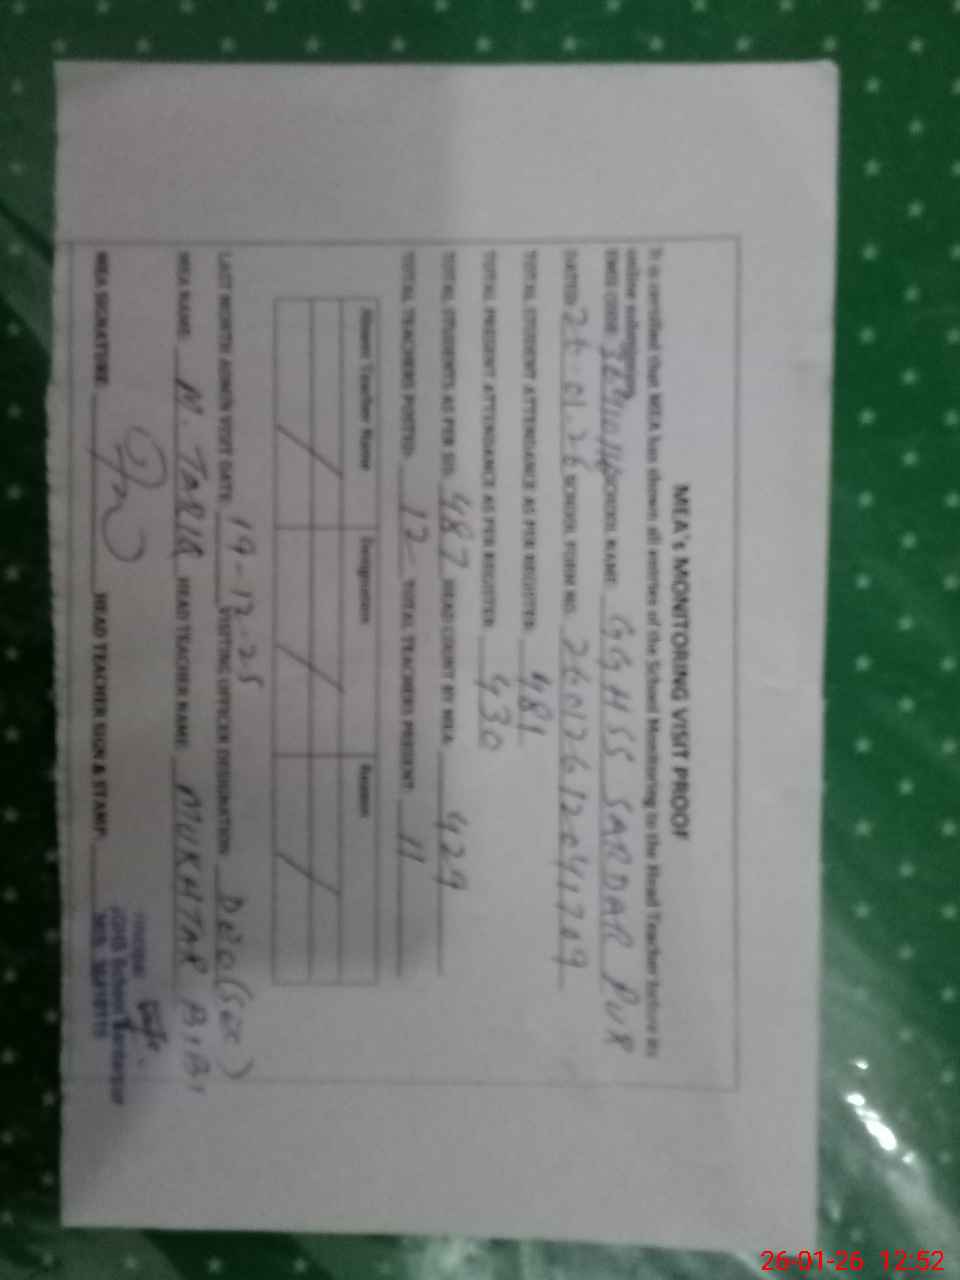 MEA's MONITORING VISIT PROOF
It is certified that MEA has shown all entries of the School Monitoring to the Head Teacher before its
online submission.
EMIS CODE SCHOOL NAME GGHSS SARDAR PUR
DATED 26-01-26 SCHOOL FORM NO.
TOTAL STUDENT ATTENDANCE AS PER REGISTER: 481
TOTAL PRESENT ATTENDANCE AS PER REGISTER: 430
TOTAL STUDENTS AS PER SIS. 487 HEAD COUNT BY MEA 429
TOTAL TEACHERS POSTED: 12 TOTAL TEACHERS PRESENT: 11
Absent Teacher Name Designation
LAST MONTH ADMIN VISIT DATE 19-12-25 VISITING OFFICER DESIGNATION
MEA NAME M. TARIQ HEAD TEACHER NAME MUKHTAR BIBI
MEA SIGNATURE: HEAD TEACHER SIGN & STAMP:
26-01-26 12:52